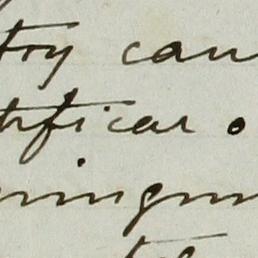 try cau
tificar o
ningun